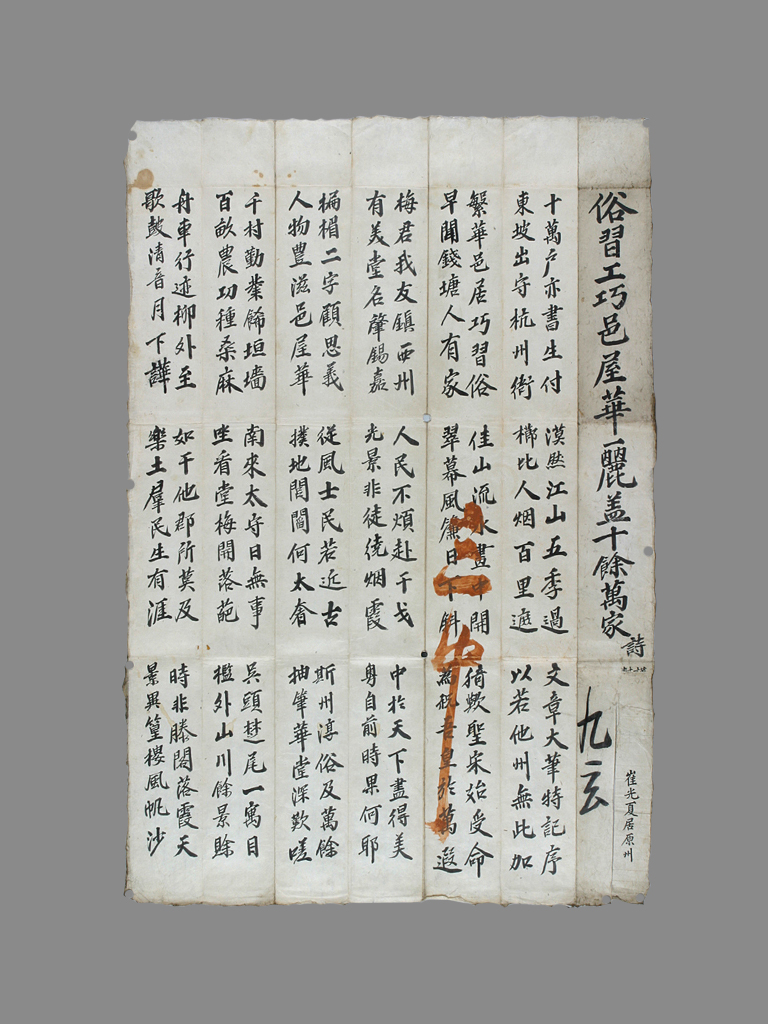 崔光夏居原州
九玄
俗習工巧邑屋華麗盖十餘萬家
詩
十萬戶亦書生付
東坡出守杭州衙
漠然江山五季過
櫛比人烟百里遮
文章大筆特記序
以若他州無此加
繁華邑居巧習俗
早聞錢塘人有家
佳山流水畫中開
翠幕風簾日下斜
猗歟聖宋始受命
爲祝吾皇於萬遐
梅君我友鎮西州
有美堂名肇錫嘉
人民不煩赴干戈
光景非徒繞烟霞
中於天下盡得美
粤自前時果何耶
楄楣二字顧思義
人物豊滋邑屋華
從風士民若近古
撲地閭閻何太奢
斯州淳俗及萬餘
抽筆華堂深歎嗟
千村勤業飾垣墻
百畝農功種桑麻
南來太守日無事
坐看堂梅開落葩
吳頭楚尾一寓目
檻外山川餘景賖
舟車行迹柳外至
歌鼓清音月下譁
如干他郡所莫及
樂土羣民生有涯
時非滕閣落霞天
景異篁樓風帆沙
三中